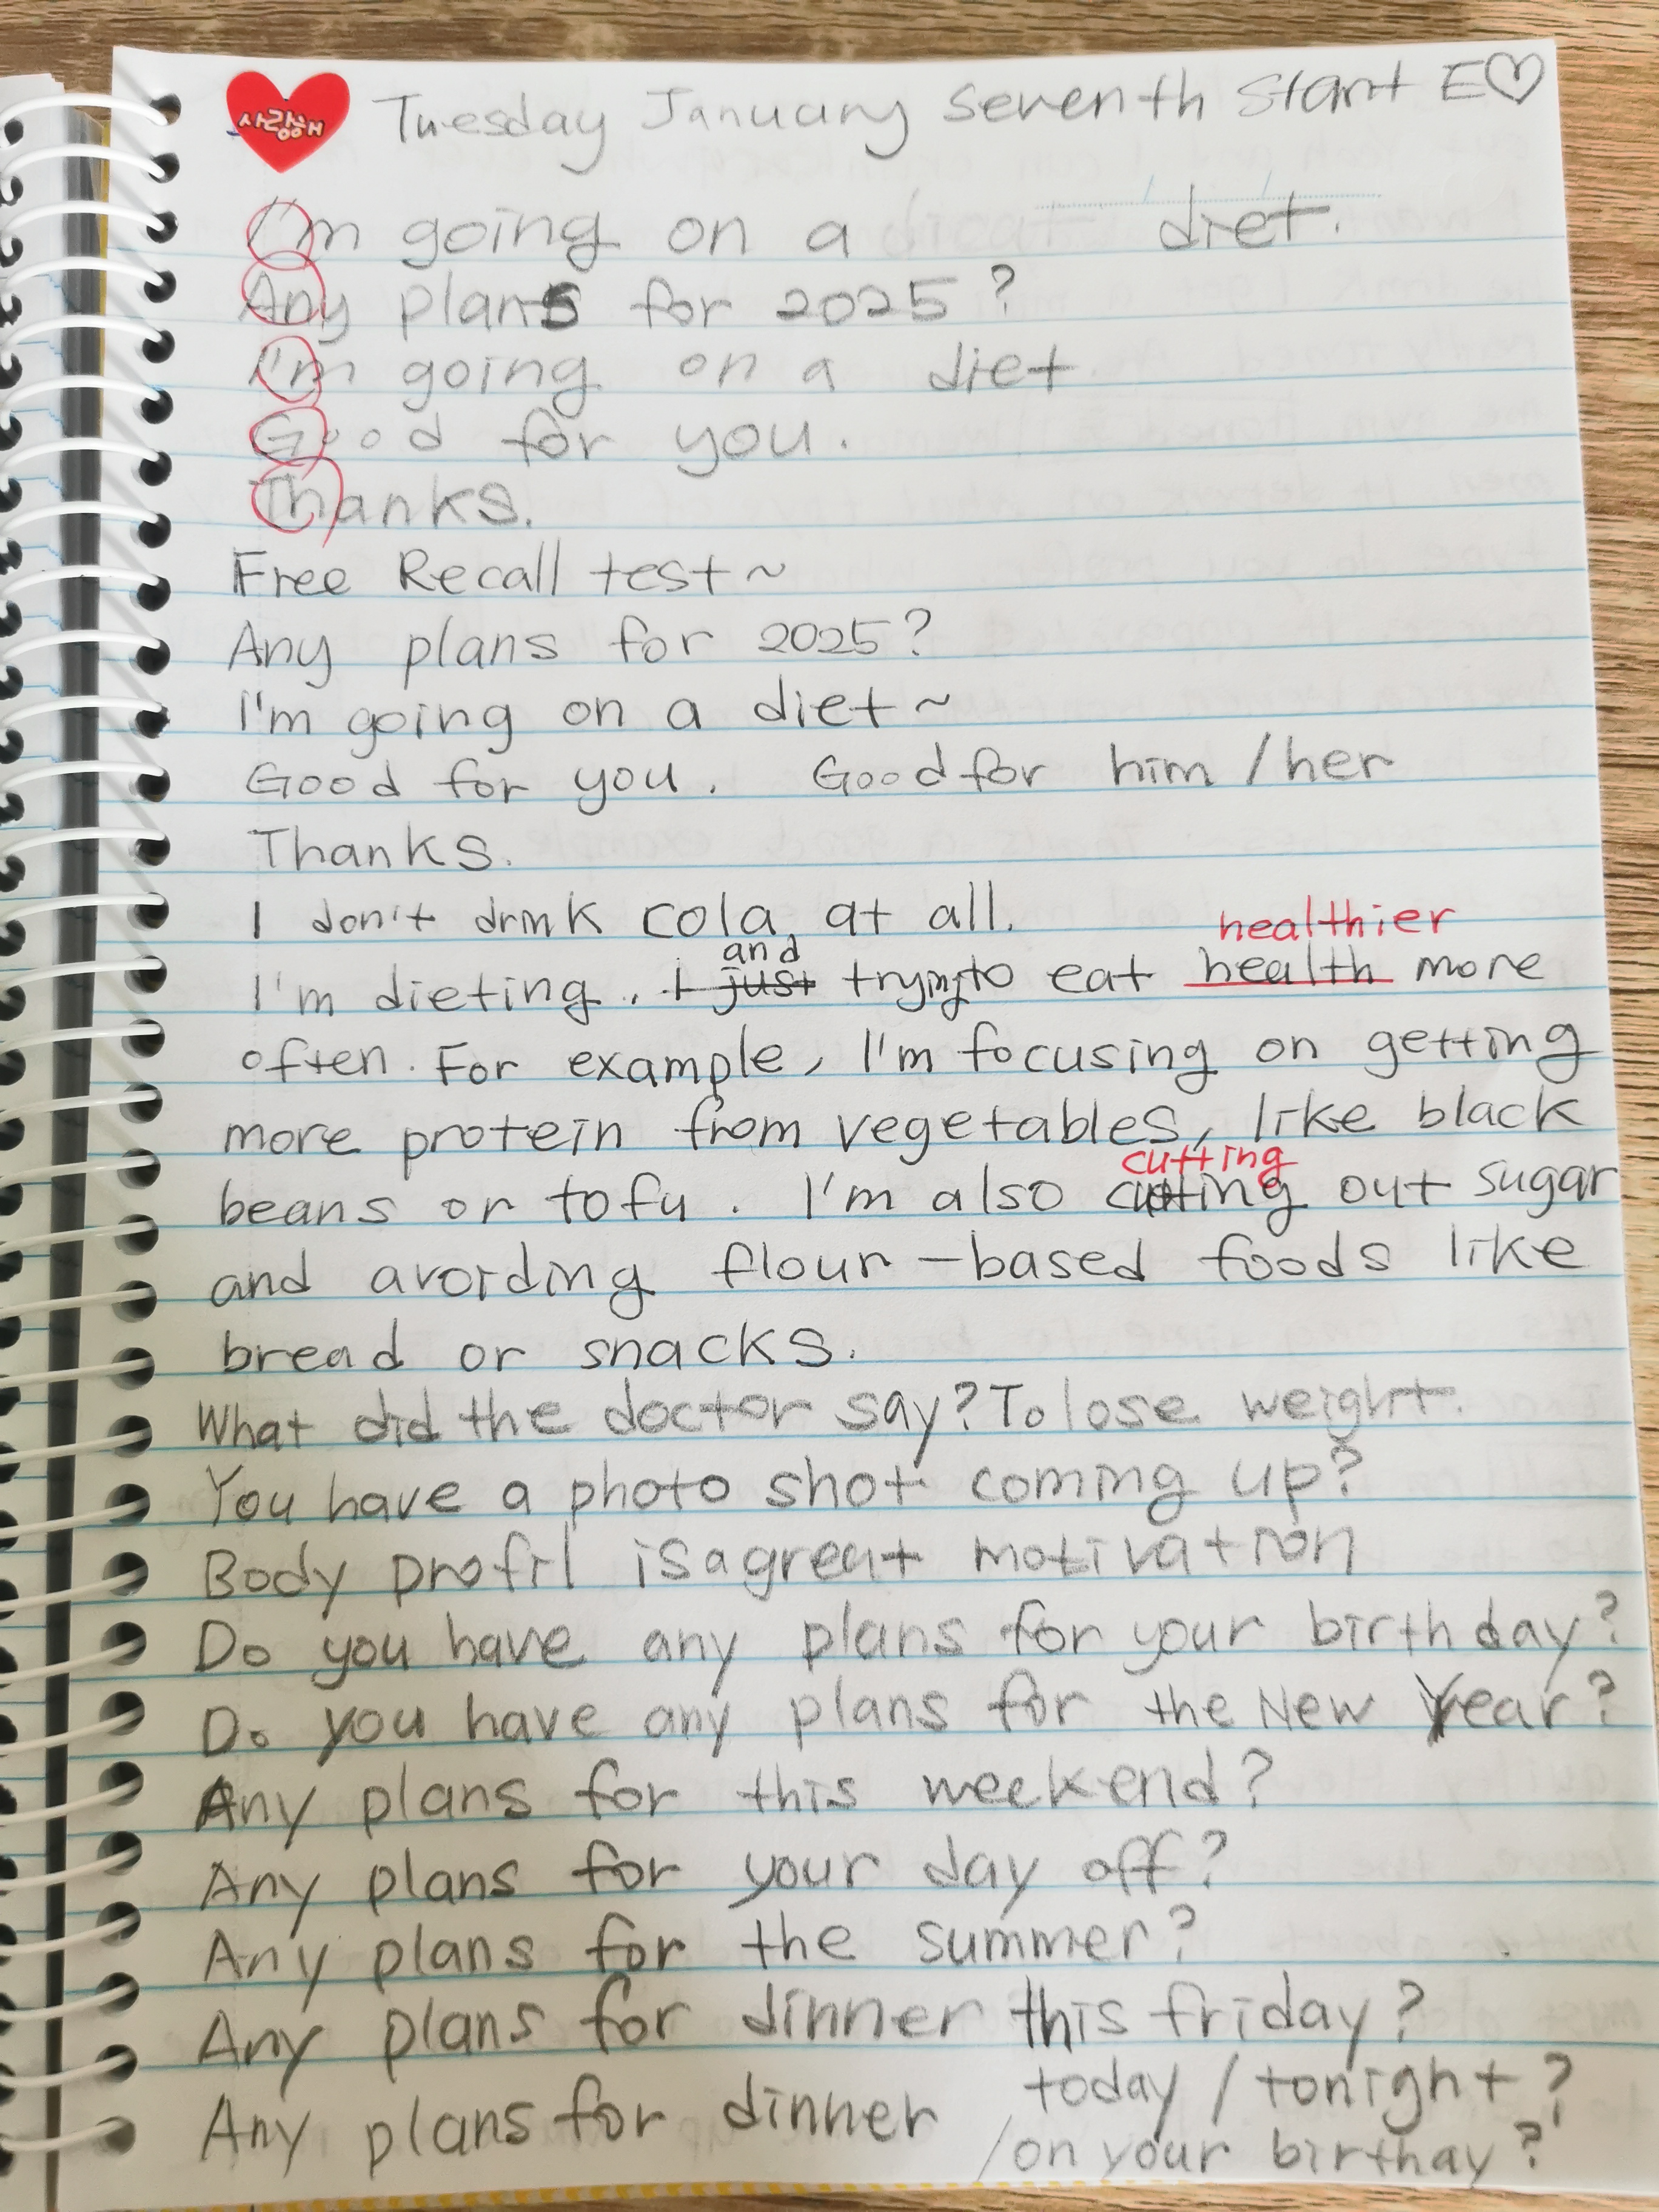 사랑해 Tuesday January seventh start E♡
I'm going on a diet.
Any plans for 2025?
I'm going on a diet
Good for you.
Thanks.
Free Recall test~
Any plans for 2025?
I'm going on a diet~
Good for you. Good for him /her
Thanks.
I don't drink cola at all.
healthier
and
I'm dieting. I just trying to eat health more
often. For example, I'm focusing on getting
more protein from vegetables, like black
cutting
beans or tofu. I'm also cutting out sugar
and avoiding flour-based foods like
bread or snacks.
What did the doctor say? To lose weight.
You have a photo shot coming up?
Body profil is a great motivation
Do you have any plans for your birthday?
Do you have any plans for the New Year?
Any plans for this weekend?
Any plans for your day off?
Any plans for the summer?
Any plans for dinner this friday?
Any plans for dinner today / tonight?
/on your birthay?